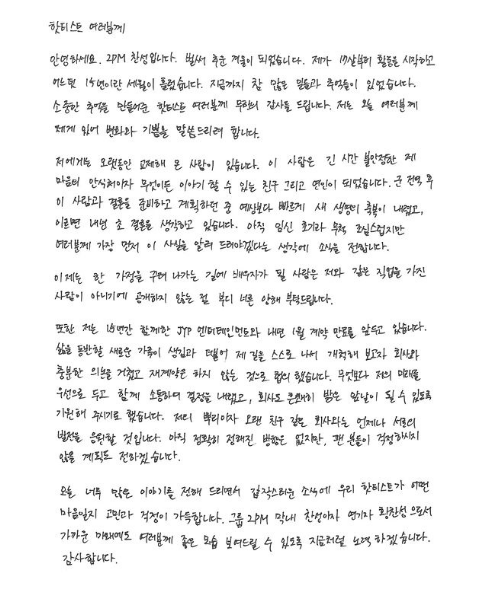 핫티스트 여러분께
안녕하세요. 2PM 찬성입니다. 벌써 추운 겨울이 되었습니다. 제가 17살부터 활동을 시작하고
어느덧 15년이란 세월이 흘렀습니다. 지금까지 참 많은 일들과 추억들이 있었습니다.
소중한 추억을 만들어준 핫티스트 여러분께 무한의 감사를 드립니다. 저는 오늘 여러분께
제게 있어 변화와 기쁨을 말씀드리려 합니다.
저에게는 오랫동안 교제해 온 사람이 있습니다. 이 사람은 긴 시간 불안정한 제
마음의 안식처이자 무엇이든 이야기 할 수 있는 친구 그리고 연인이 되었습니다. 군 전역 후
이 사람과 결혼을 준비하고 계획하던 중 예상보다 빠르게 새 생명의 축복이 내렸고,
이르면 내년 초 결혼을 생각하고 있습니다. 아직 임신 초기라 무척 조심스럽지만
여러분께 가장 먼저 이 사실을 알려 드려야겠다는 생각에 소식을 전합니다.
이제는 한 가정을 꾸려 나가는 길에 배우자가 될 사람은 저와 같은 직업을 가진
사람이 아니기에 공개하지 않는 점 부디 너른 양해 부탁드립니다.
또한 저는 15년간 함께한 JYP 엔터테인먼트와 내년 1월 계약 만료를 앞두고 있습니다.
삶을 동반할 새로운 가족이 생김과 더불어 제 길을 스스로 나서 개척해 보고자 회사와
충분한 의논을 거쳤고 재계약은 하지 않는 것으로 협의 했습니다. 무엇보다 저의 미래를
우선으로 두고 함께 소통하며 결정을 내렸고, 회사도 은퇴히 밝은 앞날이 될 수 있도록
기원해 주시기로 했습니다. 저의 뿌리이자 오랜 친구 같은 회사와는 언제나 서로의
발전을 응원할 것입니다. 아직 정확히 정해진 방향은 없지만, 팬 분들이 걱정하시지
않을 계획도 전하겠습니다.
오늘 너무 많은 이야기를 전해 드리면서 갑작스러운 소식에 우리 핫티스트가 어떤
마음일지 고민과 걱정이 가득합니다. 그룹 2PM 막내 찬성이자 연기자 황찬성 으로서
가까운 미래에도 여러분께 좋은 모습 보여드릴 수 있도록 지금처럼 노력하겠습니다.
감사합니다.